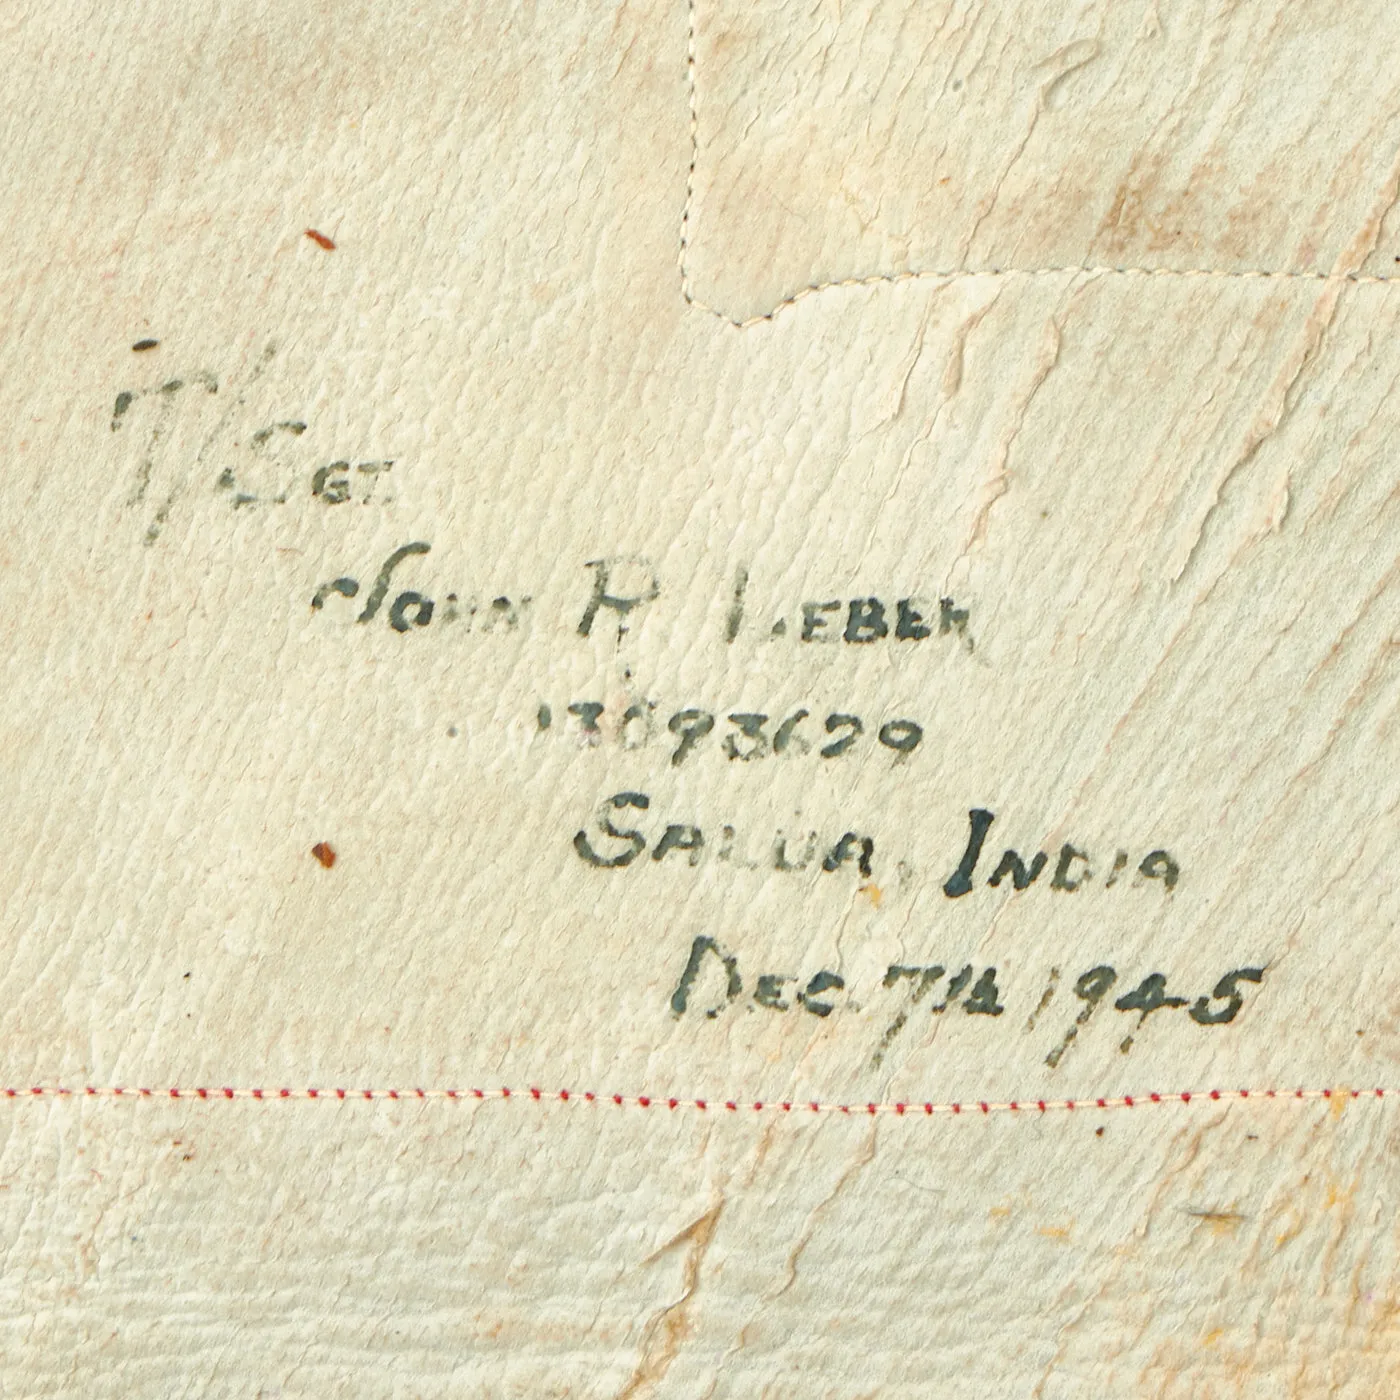 T/Sgt
John R. Leber
13093629
Salua, India
Dec. 7th 1945